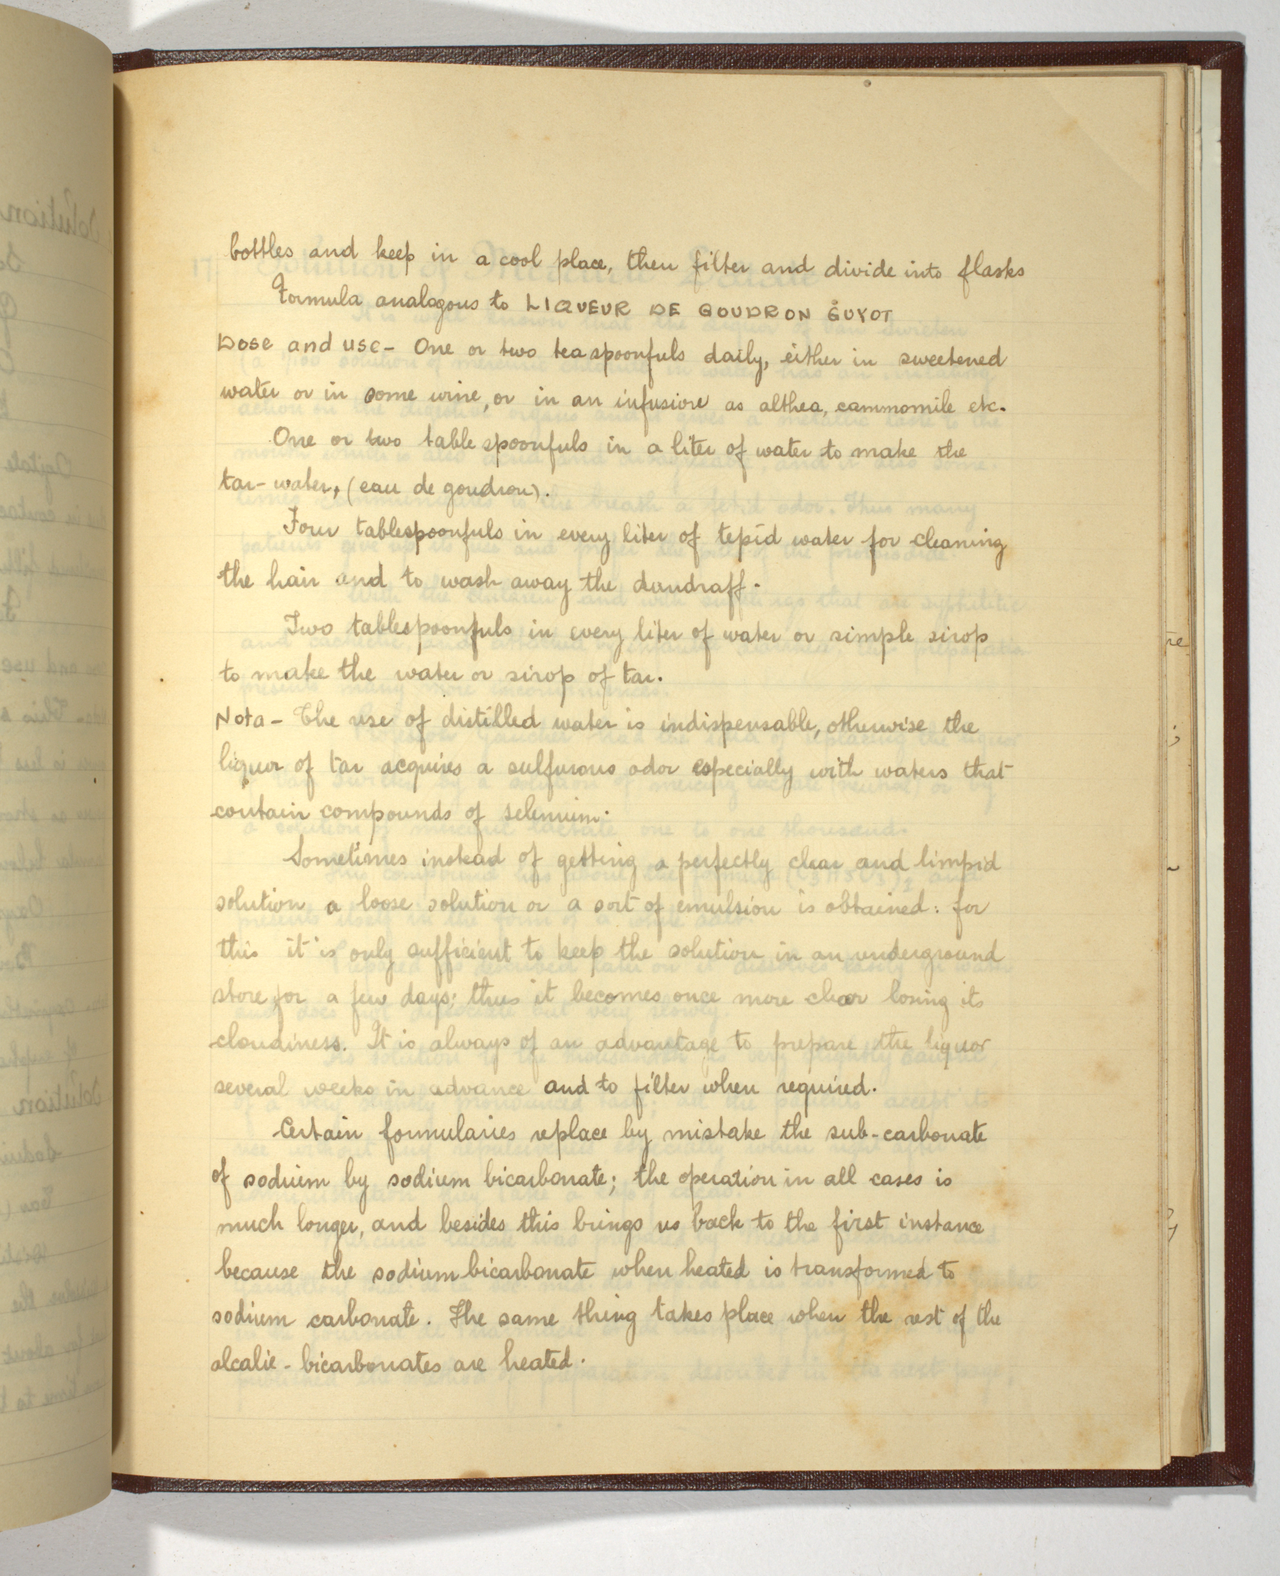 bottles and keep in a cool place, then filter and divide into flasks
Formula analogous to LIQUEUR DE GOUDRON GUYOT
Dose and use- One or two teaspoonfuls daily, either in sweetened
water or in some wine, or in an infusion as althea, cammomile etc.
One or two tablespoonfuls in a liter of water to make the
tar-water, (eau de goudron).
Four tablespoonfuls in every liter of tepid water for cleaning
the hair and to wash away the dandraff.
Two tablespoonfuls in every liter of water or simple sirop
to make the water or sirop of tar.
Nota- The use of distilled water is indispensable, otherwise the
liquor of tar acquires a sulfurous odor especially with waters that
contain compounds of selenium.
Sometimes instead of getting a perfectly clear and limpid
solution a loose solution or a sort of emulsion is obtained: for
this it is only sufficient to keep the solution in an underground
store for a few days; thus it becomes once more clear losing its
cloudiness. It is always of an advantage to prepare the liquor
several weeks in advance and to filter when required.
Certain formularies replace by mistake the sub-carbonate
of sodium by sodium bicarbonate; the operation in all cases is
much longer, and besides this brings us back to the first instance
because the sodium bicarbonate when heated is transformed to
sodium carbonate. The same thing takes place when the rest of the
alcalie-bicarbonates are heated.